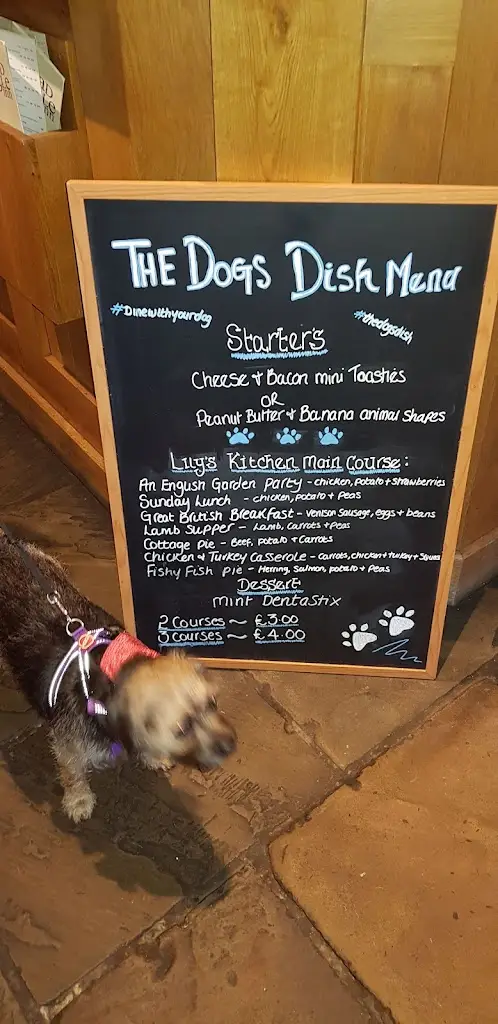 THE DOGS Dish Menu
#Dinewithyourdog
#thedogsdish
Starters
Cheese + Bacon mini Toasties
OR
Peanut Butter + Banana animal shapes
Lily's Kitchen Main Course:
An English Garden Party - chicken, potato + strawberries
Sunday Lunch - chicken, potato + Peas
Great British Breakfast - venison sausage, eggs + beans
Lamb Supper - Lamb, carrots + Peas
Cottage Pie - Beef, potato + Carrots
Chicken + Turkey Casserole - carrots, chicken + turkey +
Fishy Fish Pie - Herring, Salmon, potato + Peas
Dessert
Mint Dentastix
2 Courses ~ £3.00
3 Courses ~ £4.00